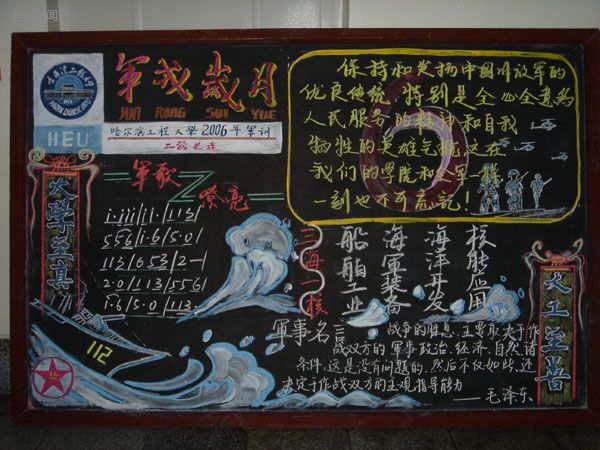 軍戎歲月
JUN RONG SUI YUE
HEU
哈尔滨工程大學2006年軍训
保持和发扬中国解放军的
优良传统 特别是全心全意为
人民服务的精神和自我
牺牲的英雄气概,这在
我们的学院和全军一样
一刻也不可忘记!
大學至真
軍歌
嘹亮
556|1·6|5·0|
113|653|2-|
2·0|113|5561
1·6|5·0|113·
112
三海一核
船舶工业
海軍装备
海洋开发
核能应用
大工至善
軍事名言
战争的胜负,主要取决于作
战双方的軍事政治、经济、自然诸
条件,这是没有问题的,然后不仅如此,还
决定于作战双方的主观指导能力
——毛泽东